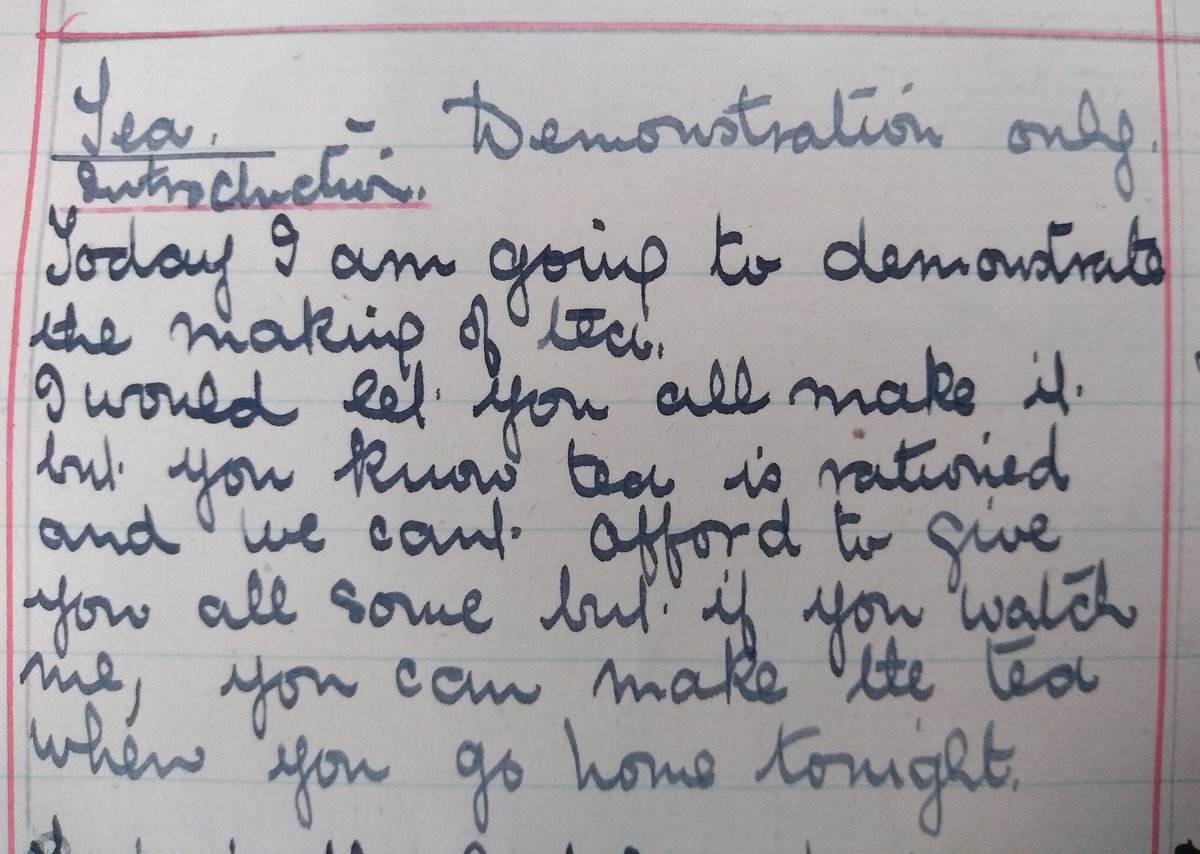 Tea. - Demonstration only.
Introduction.
Today I am going to demonstrate
the making of tea.
I would let you all make it
but you know tea is rationed
and we cant afford to give
you all some but if you watch
me, you can make the tea
when you go home tonight.